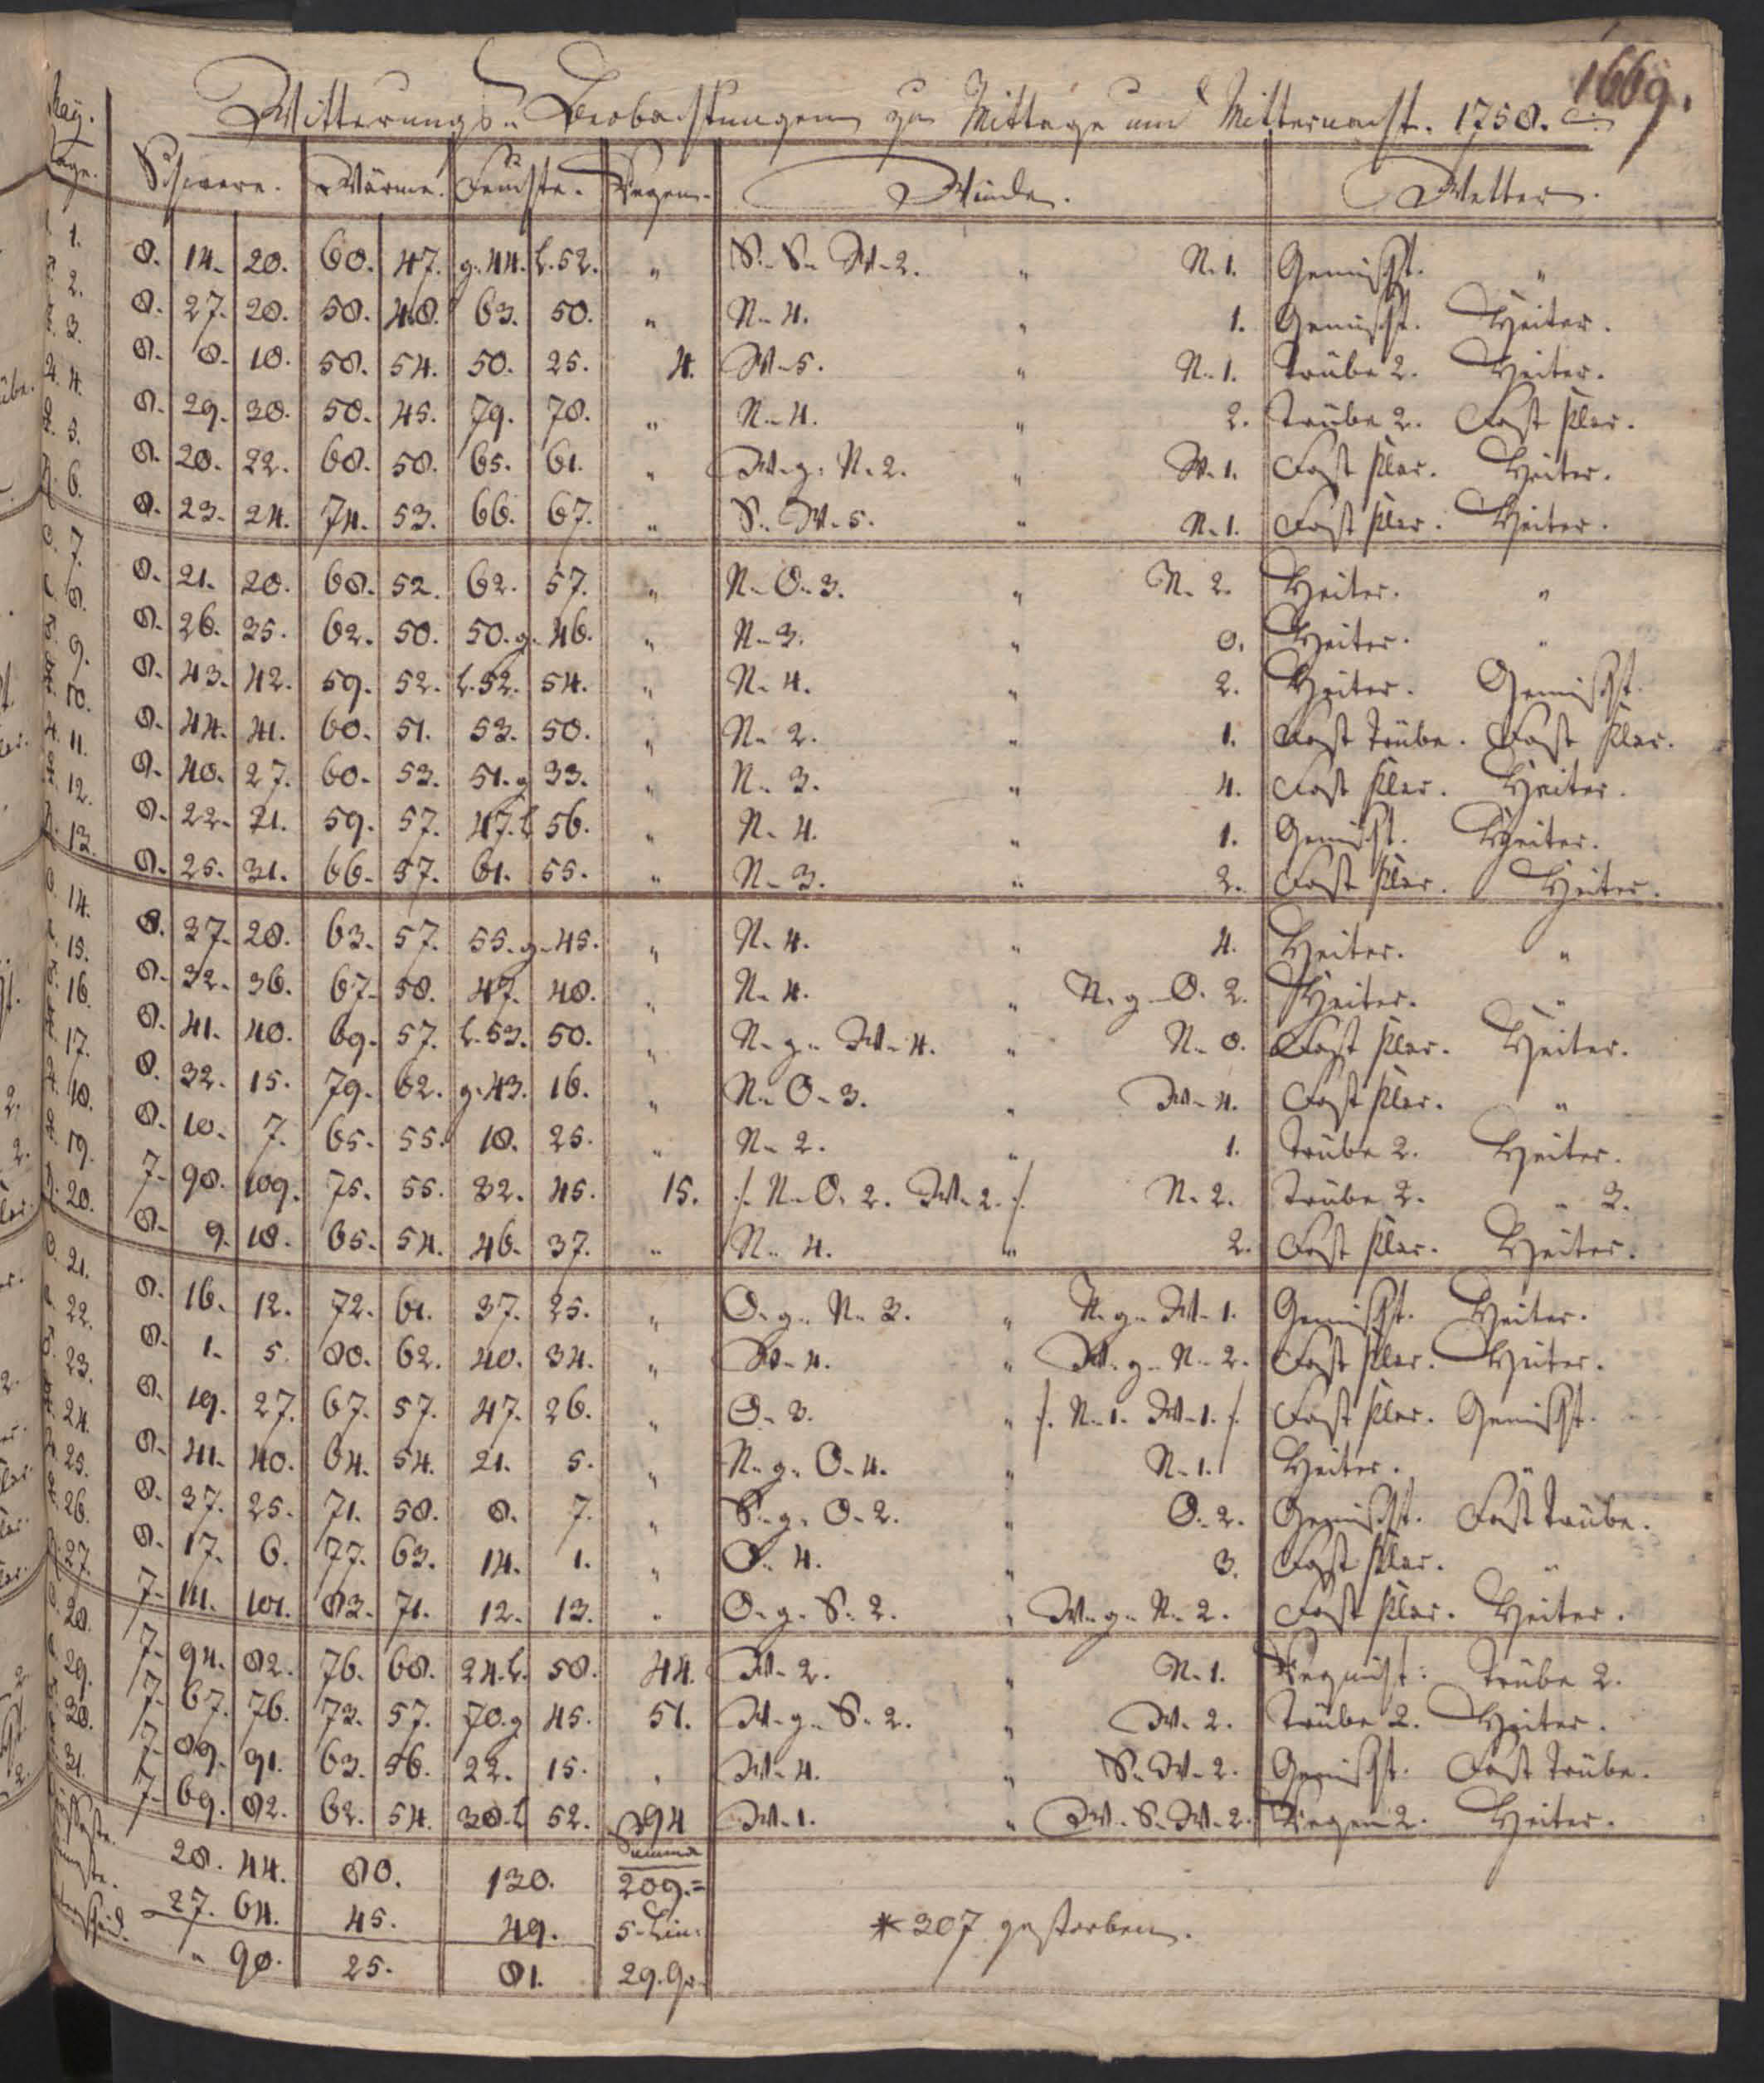 1669.
May. Witterungs- Beobachtungen zu Mittage und Mitternacht. 1758.
Tage. Schwere. Wärme. Feuchte. Regen. Winde. Wetter.
1. 8. 14. 20. 60. 47. g. 44. l. 52. " S.- S.- W- 2. " N. 1. Gemischt. "
2. 8. 27. 28. 58. 48. 63. 50. " N- 4. " 1. Gemischt. Heiter.
3. 8. 8. 18. 58. 54. 50. 25. 4. W- 5. " N- 1. Trübe 2. Heiter.
4. 8. 29. 30. 50. 45. 79. 78. " N- 4. " 2. Trübe 2. Fast klar.
5. 8. 28. 22. 68. 58. 65. 61. " W- g. N- 2. " W- 1. Fast klar. Heiter.
6. 8. 23. 24. 74. 53. 66. 67. " S.- W- 5. " N- 1. Fast klar. Heiter.
7. 8. 21. 20. 68. 52. 62. 57. " N- O- 3. " N- 2. Heiter. "
8. 8. 26. 35. 62. 50. 50. g. 46. " N- 3. " 0. Heiter. "
9. 8. 43. 42. 59. 52. l. 52. 54. " N- 4. " 2. Heiter. Gemischt.
10. 8. 44. 41. 60. 51. 53. 50. " N- 2. " 1. Fast Trübe. Fast klar.
11. 8. 40. 27. 60. 53. 51. g 33. " N- 3. " 4. Fast klar. Heiter.
12. 8. 22. 21. 59. 57. 47. l 56. " N- 4. " 1. Gemischt. Heiter.
13. 8. 25. 31. 66. 57. 61. 55. " N- 3. " 2. Fast klar. Heiter.
14. 8. 37. 28. 63. 57. 55. g. 45. " N- 4. " 4. Heiter. "
15. 8. 32. 36. 67. 58. 47. 48. " N- 4. " N- g- O. 2. Heiter. "
16. 8. 41. 40. 69. 57. l. 53. 50. " N- g- W- 4. " N- 0. Fast klar. Heiter.
17. 8. 32. 15. 79. 62. g. 43. 16. " N- O- 3. " W- 4. Fast klar. "
18. 8. 10. 7. 65. 55. 18. 25. " N- 2. " 1. Trübe 2. Heiter.
19. 7. 98. 109. 75. 55. 32. 45. 15. /. N- O. 2. W- 2. /. N- 2. Trübe 2. " 3.
20. 8. 9. 18. 65. 54. 46. 37. " N- 4. " 2. Fast klar. Heiter.
21. 8. 16. 12. 72. 61. 37. 25. " O- g- N- 3. " N- g- W- 1. Gemischt. Heiter.
22. 8. 1. 5. 80. 62. 40. 34. " W- 4. " W- g- N- 2. Fast klar. Heiter.
23. 8. 19. 27. 67. 57. 47. 26. " O- 3. " /. N- 1. W- 1. /. Fast klar. Gemischt.
24. 8. 41. 40. 64. 54. 21. 5. " N- g- O- 4. " N- 1. Heiter. "
25. 8. 37. 25. 71. 58. 8. 7. " S- g. O- 2. " O- 2. Gemischt. Fast Trübe.
26. 8. 17. 6. 77. 63. 14. 1. " O- 4. " 3. Fast klar. "
27. 7. 111. 101. 83. 71. 12. 13. " O- g- S- 2. " W- g- N- 2. Fast klar. Heiter.
28. 7. 94. 82. 76. 68. 24. l. 58. 44. W- 2. " N- 1. Regnicht: Trübe 2.
29. 7. 67. 76. 73. 57. 70. g 45. 51. W- g- S- 2. " W- 2. Trübe 2. Heiter.
30. 7. 89. 91. 63. 56. 22. 15. " W- 4. " S- W- 2. Gemischt. Fast Trübe.
31. 7. 69. 82. 62. 54. 38. l 52. 94 W- 1. " W- S- W- 2. Regen 2. Heiter.
28. 44. 80. 130. Summa 209.=
27. 64. 45. 49. 5- Lin:
" 90. 25. 81. 29. Gr.
* 307 gestorben.